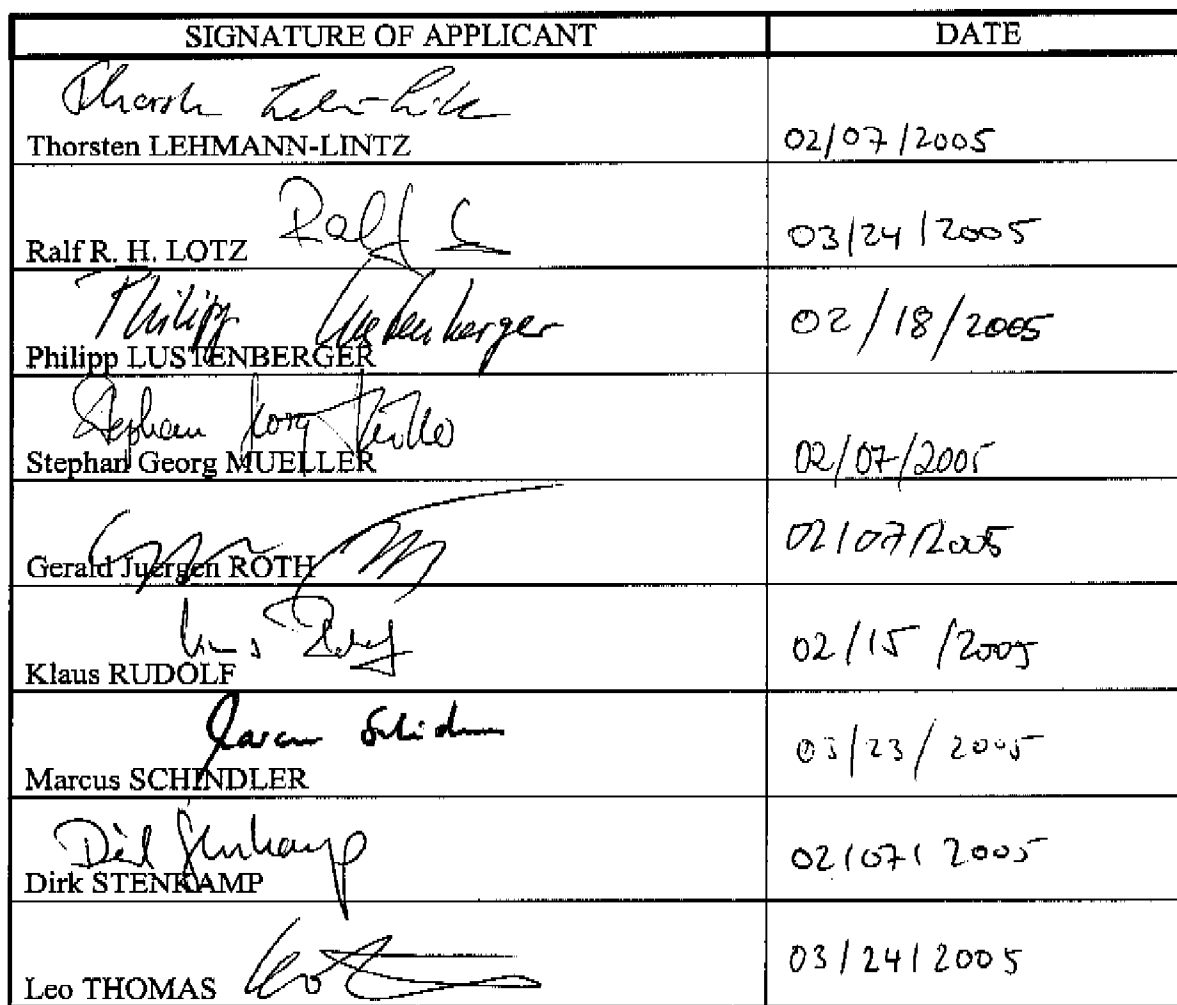 SIGNATURE OF APPLICANT DATE
Thorsten LEHMANN-LINTZ 02/07/2005
Ralf
Ralf R. H. LOTZ 03/24/2005
Philipp Lustenberger
Philipp LUSTENBERGER 02/18/2005
Stephan Georg Müller
Stephan Georg MUELLER 02/07/2005
Gerald Juergen ROTH 02/07/2005
Klaus RUDOLF 02/15/2005
Marcus SCHINDLER 03/23/2005
Dirk Stenkamp
Dirk STENKAMP 02/07/2005
Leo THOMAS Leo 03/24/2005